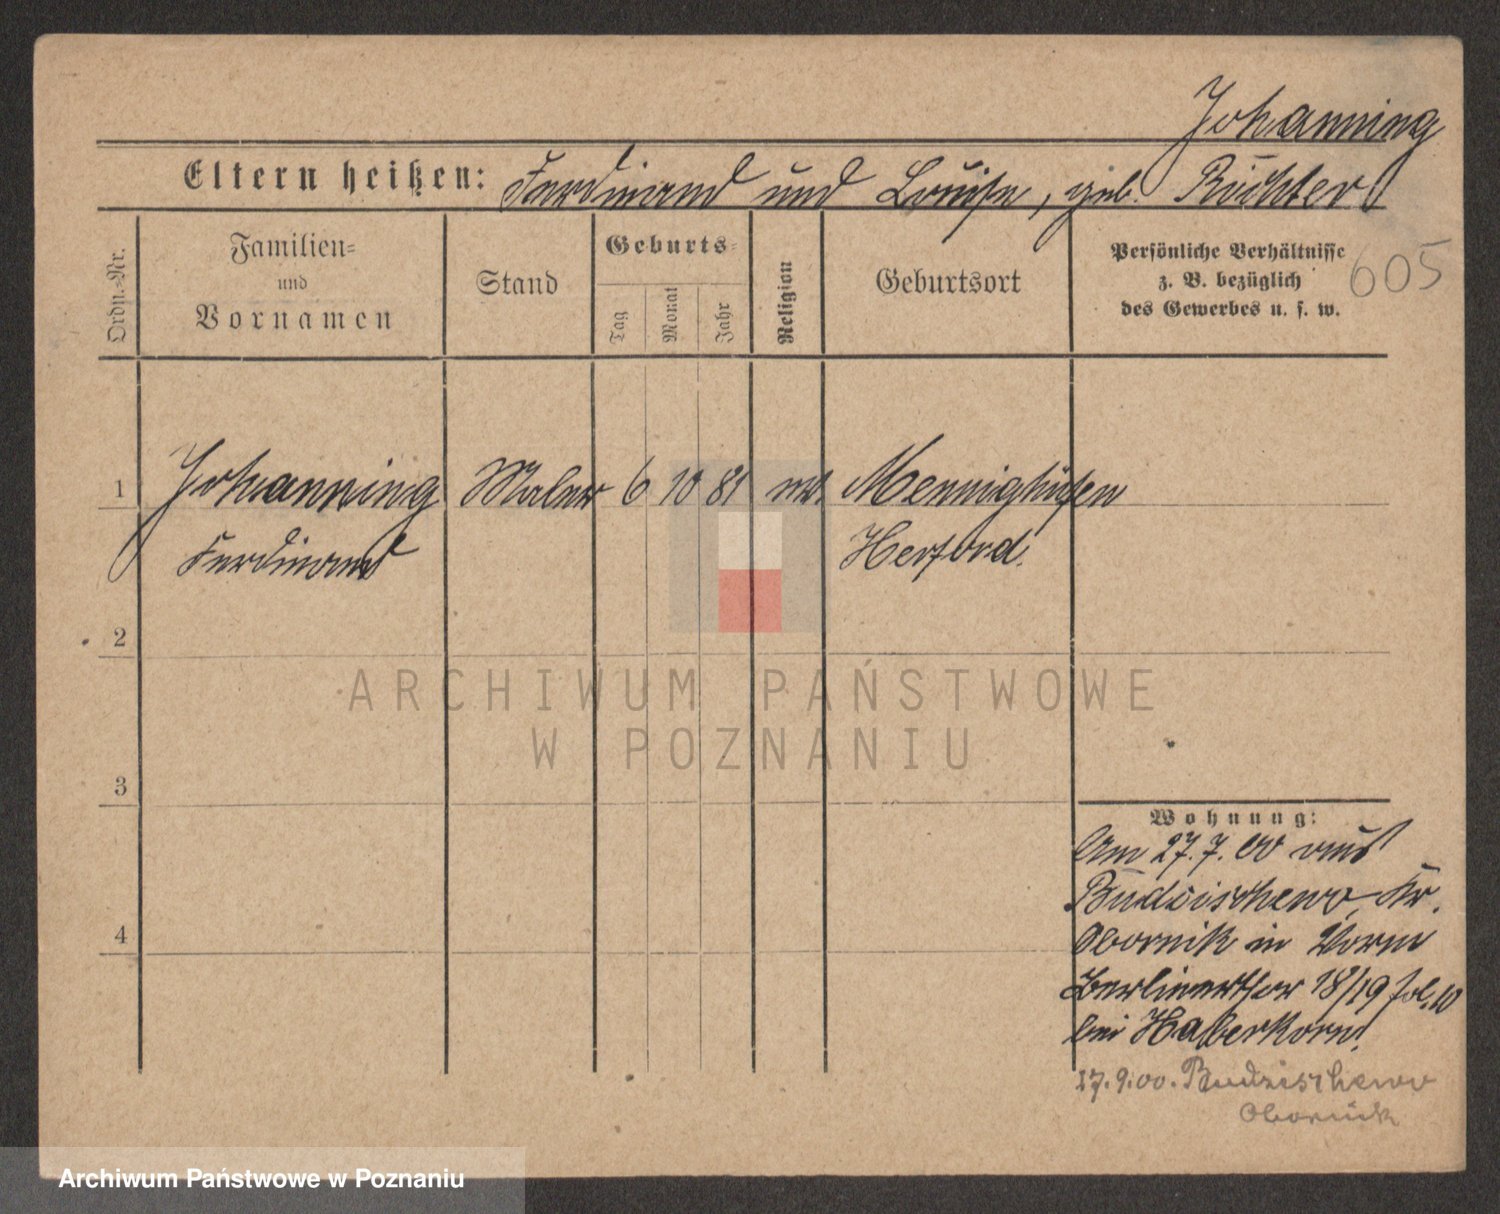 Johanning
Eltern heißen: Ferdinand und Louise, geb. Büchter
Ordn.-Nr.
Familien-
und
Vornamen
Stand
Geburts-
Tag
Monat
Jahr
Religion
Geburtsort
Persönliche Verhältnisse
z. B. bezüglich
des Gewerbes u. s. w.
605
1 Johanning Maler 6 10 81 ev. Mennighüffen
Ferdinand Herford.
2
3
4
Wohnung:
Am 27.7.00 aus
Budzischewo, Kr.
Obornik in
Berlinerthor 18/19 fol. 10
bei Haberkorn.
17.9.00. Budzischewo
Obornik
ARCHIWUM PAŃSTWOWE
W POZNANIU
Archiwum Państwowe w Poznaniu